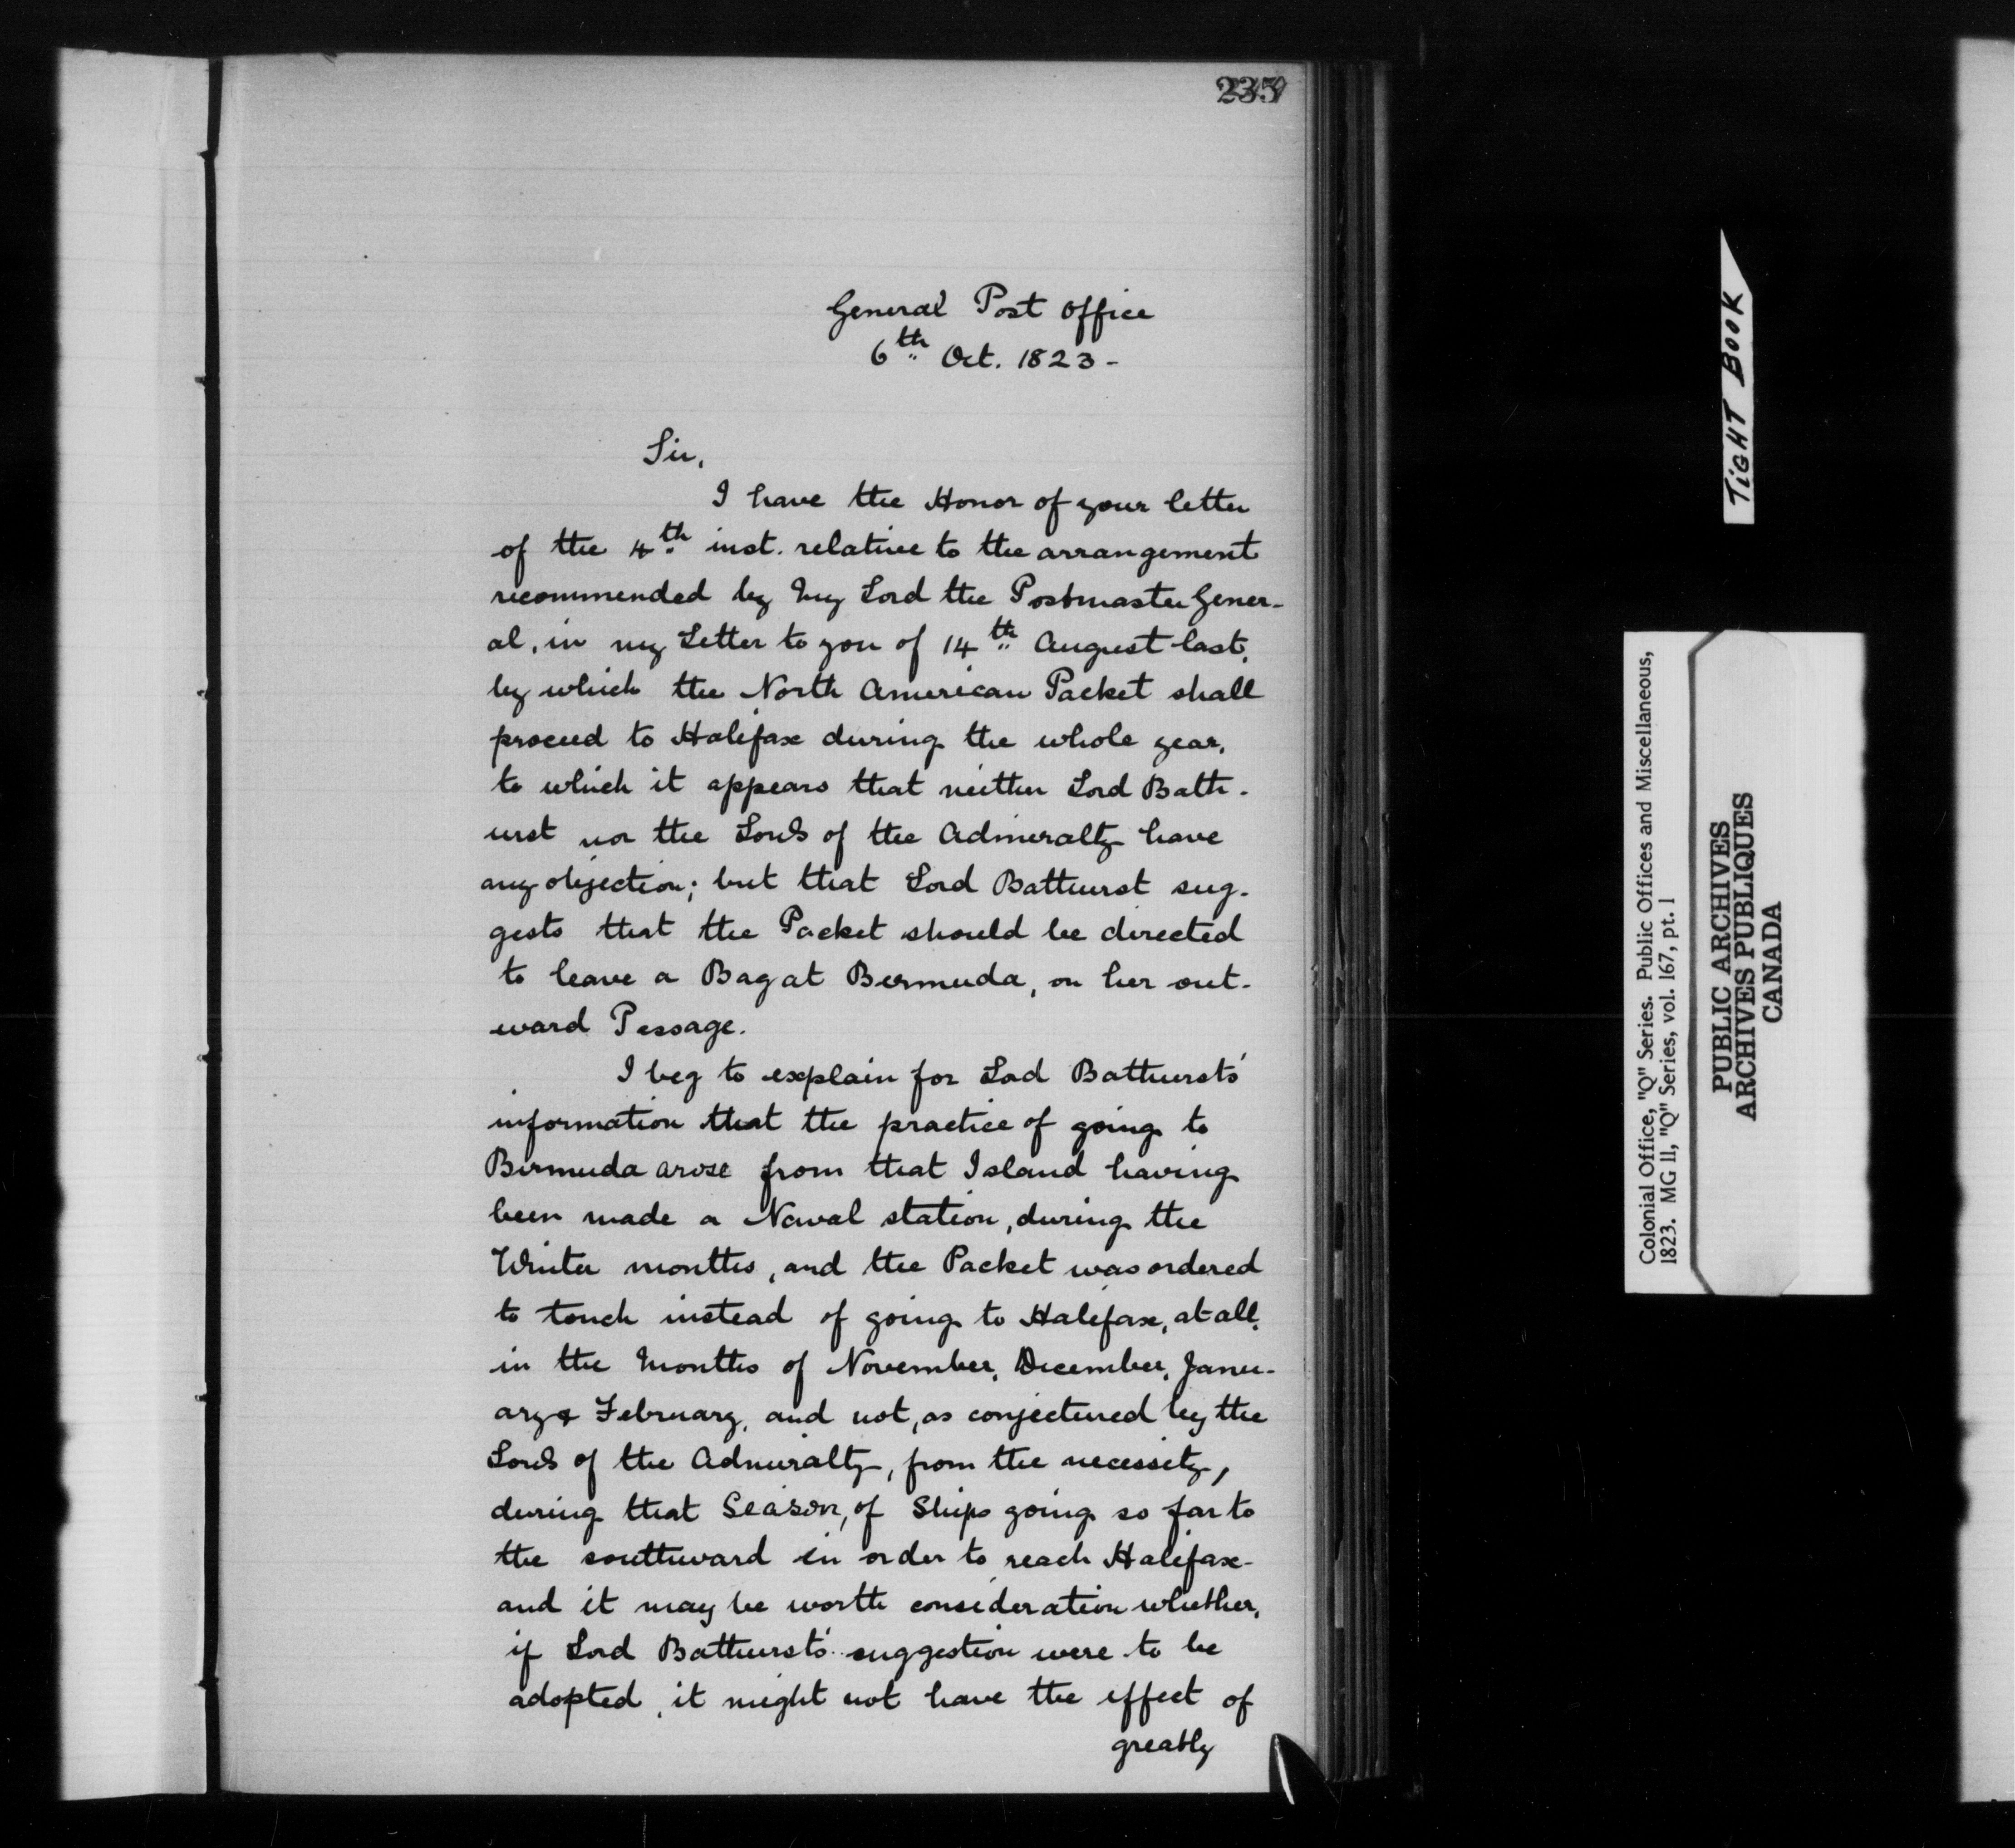 235
General Post Office
6th Oct. 1823 -
Sir,
I have the Honor of your letter
of the 4th inst. relative to the arrangement
recommended by My Lord the Postmaster Gener-
al, in my Letter to you of 14th August last,
by which the North American Packet shall
proceed to Halifax during the whole year,
to which it appears that neither Lord Bath-
urst nor the Lords of the Admiralty have
any objection; but that Lord Bathurst sug-
gests that the Packet should be directed
to leave a Bag at Bermuda, on her out-
ward Passage.
I beg to explain for Lord Bathurst's
information that the practice of going to
Bermuda arose from that Island having
been made a Naval station, during the
Winter months, and the Packet was ordered
to touch instead of going to Halifax, at all,
in the Months of November, December, Janu-
ary & February, and not, as conjectured by the
Lords of the Admiralty, from the necessity,
during that Season, of Ships going so far to
the southward in order to reach Halifax-
and it may be worth consideration whether,
if Lord Bathurst's suggestion were to be
adopted, it might not have the effect of
greatly
TIGHT BOOK
Colonial Office, "Q" Series. Public Offices and Miscellaneous,
1823. MG 11, "Q" Series, vol. 167, pt. 1
PUBLIC ARCHIVES
ARCHIVES PUBLIQUES
CANADA